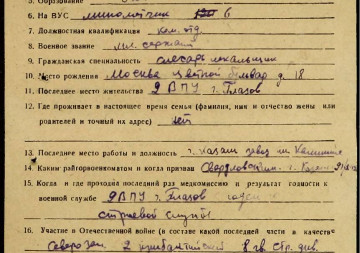 5. Образование
6. На ВУС минометчик 6
7. Должностная квалификация ком. отд.
8. Военное звание мл. сержант
9. Гражданская специальность слесарь лекальщик
10. Место рождения Москва Цветной бульвар д. 18
11. Последнее место жительства ДВПУ г. Глазов
12. Где проживает в настоящее время семья (фамилия, имя и отчество жены или
родителей и точный адрес) нет
13. Последнее место работы и должность г. Казань завод им. Калинина
14. Каким райгорвоенкоматом и когда призван г. Казань
15. Когда и где проходил последний раз медкомиссию и результат годности к
военной службе ДВПУ г. Глазов годен к
строевой службе
16. Участие в Отечественной войне (в составе какой последней части в качестве
2 прибалтийский 8 гв. стр. див.